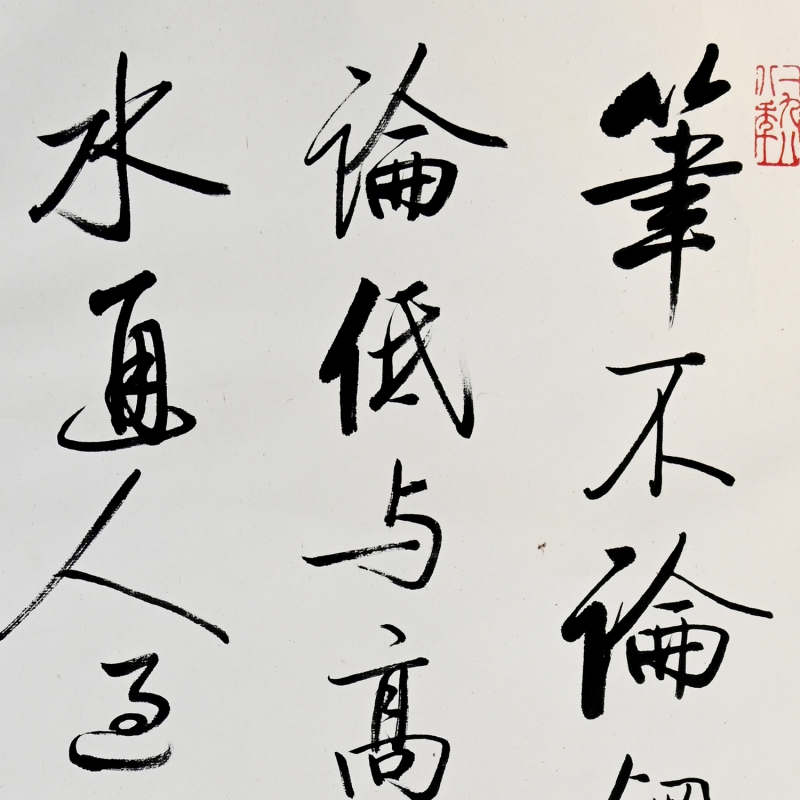 筆不論
論低与高
水通人过